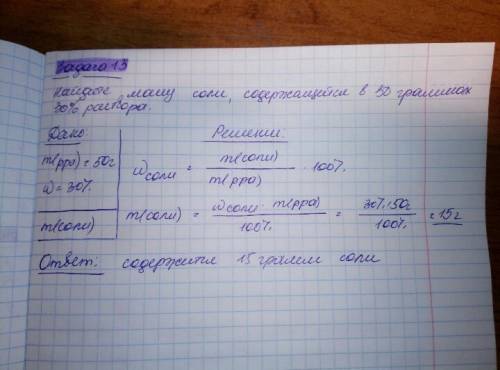 Задача 13
Найдите массу соли, содержащейся в 50 граммах
30% раствора.
Дано:
m(рра) = 50г
ω = 30%
m(соли)
Решение:
ω соли = m(соли) / m(рра) · 100%
m(соли) = ω соли · m(рра) / 100% = 30% · 50г / 100% = 15г
Ответ: содержится 15 грамм соли